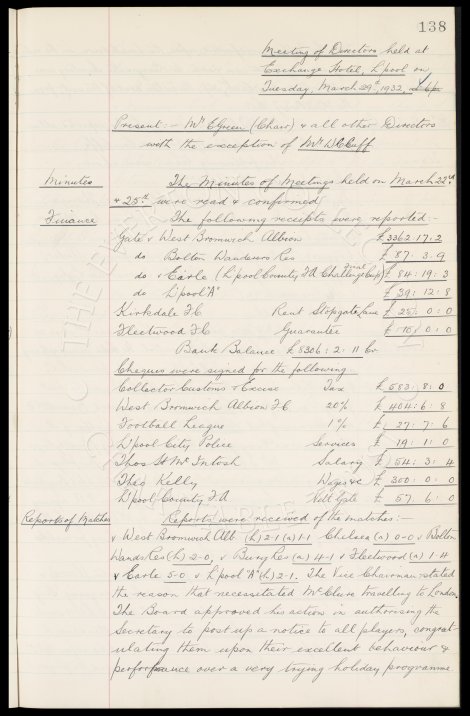 138
Meeting of Directors held at
Exchange Hotel, L'pool on
Tuesday, March 29th, 1932,
Present:- Mr E Green (Chair) & all other Directors
with the exception of Mr W C Cuff
Minutes The Minutes of Meetings held on March 22nd
& 25th were read & confirmed
Finance The following receipts were reported:-
Gate v West Bromwich Albion £3362.17.2
do Bolton Wanderers Res £ 87.3.9
do v Earle (L'pool County FA Challenge Cup) Final £ 84:19:3
do L'pool "A" £ 39:12:8
Kirkdale FC Rent Stopgate Lane £ 25:0:0
Fleetwood FC Guarantee £ 10:0:0
Bank Balance £8306:2:11 Cr
Cheques were signed for the following
Collector Customs & Excise Tax £583:8:0
West Bromwich Albion FC 20% £404:6:8
Football League 1% £ 27:7:6
L'pool City Police Services £ 19:11:0
Thos H McIntosh Salary £ 54:3:4
Theo Kelly Wages &c £ 300:0:0
L'pool County FA Nett Gate £ 57.6:0
Reports of Matches Reports were received of the matches:-
v West Bromwich Alb (h) 2-1 (a) 1-1 Chelsea (a) 0-0 v Bolton
Wands Res (h) 2-0, v Bury Res (a) 4-1 v Fleetwood (a) 1-4
v Earle 5-0 v L'pool "A" (h) 2-1. The Vice Chairman stated
the reason that necessitated McClure travelling to London.
The Board approved his action in authorising the
Secretary to post up a notice to all players, congrat-
ulating them upon their excellent behaviour &
performance over a very trying holiday programme.